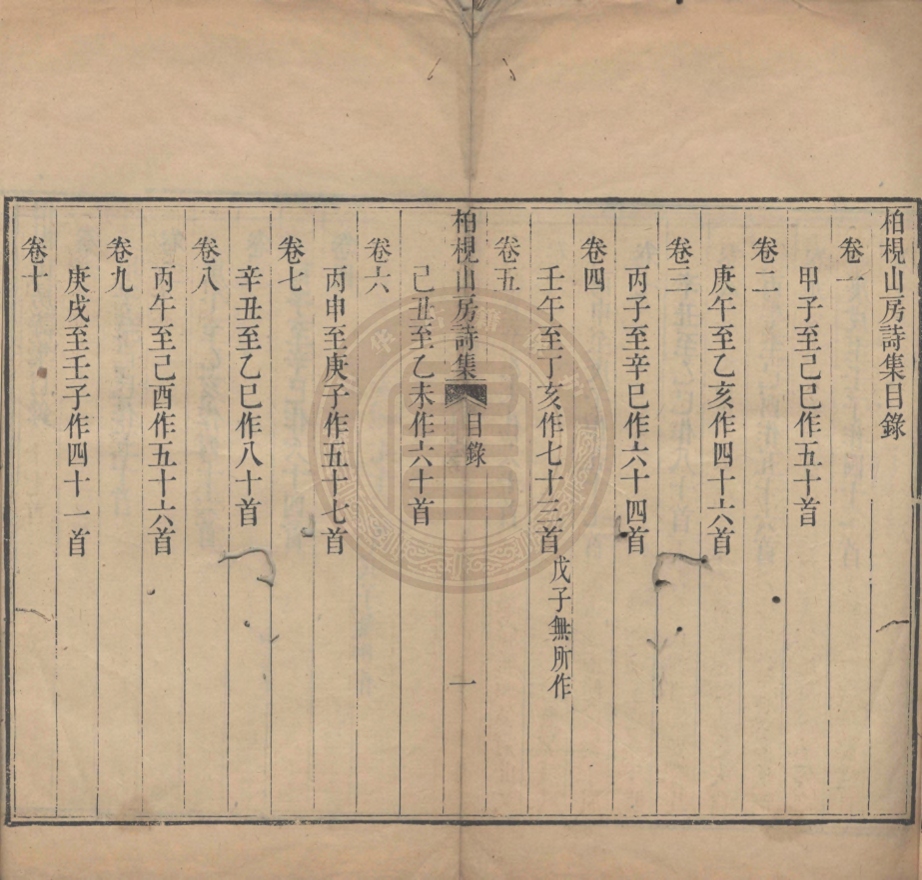 柏梘山房詩集目錄
卷一
甲子至己巳作五十首
卷二
庚午至乙亥作四十六首
卷三
丙子至辛巳作六十四首
卷四
壬午至丁亥作七十三首戊子無所作
卷五
柏梘山房詩集 目錄 一
己丑至乙未作六十首
卷六
丙申至庚子作五十七首
卷七
辛丑至乙巳作八十首
卷八
丙午至己酉作五十六首
卷九
庚戌至壬子作四十一首
卷十